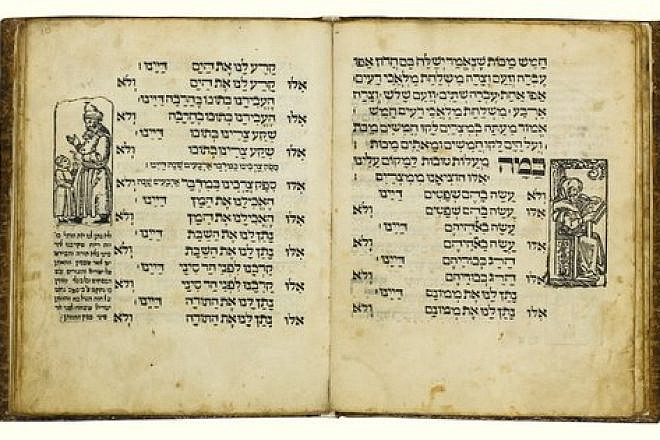 חמש מכות שנאמר ישלח בם חרון אפו
עברה וזעם וצרה משלחת מלאכי רעים:
אפו אחת עברה שתים וזעם שלש וצרה
ארבע משלחת מלאכי רעים חמש
אמור מעתה במצרים לקו חמשים מכות
ועל הים לקו חמשים ומאתים מכות
כמה מעלות טובות למקום עלינו
אלו הוציאנו ממצרים
ולא עשה בהם שפטים דיינו:
אלו עשה בהם שפטים ולא
עשה באלהיהם דיינו:
אלו עשה באלהיהם ולא
הרג בכוריהם דיינו:
אלו הרג בכוריהם ולא
נתן לנו את ממונם דיינו:
אלו נתן לנו את ממונם ולא
קרע לנו את הים דיינו:
אלו קרע לנו את הים ולא
העבירנו בתוכו בחרבה דיינו:
אלו העבירנו בתוכו בחרבה ולא
שקע צרינו בתוכו דיינו:
אלו שקע צרינו בתוכו ולא
ספק צרכינו במדבר ארבעים שנה דיינו:
אלו ספק צרכינו במדבר ארבעים שנה ולא
האכילנו את המן דיינו:
אלו האכילנו את המן ולא
נתן לנו את השבת דיינו:
אלו נתן לנו את השבת ולא
קרבנו לפני הר סיני דיינו:
אלו קרבנו לפני הר סיני ולא
נתן לנו את התורה דיינו:
אלו נתן לנו את התורה ולא